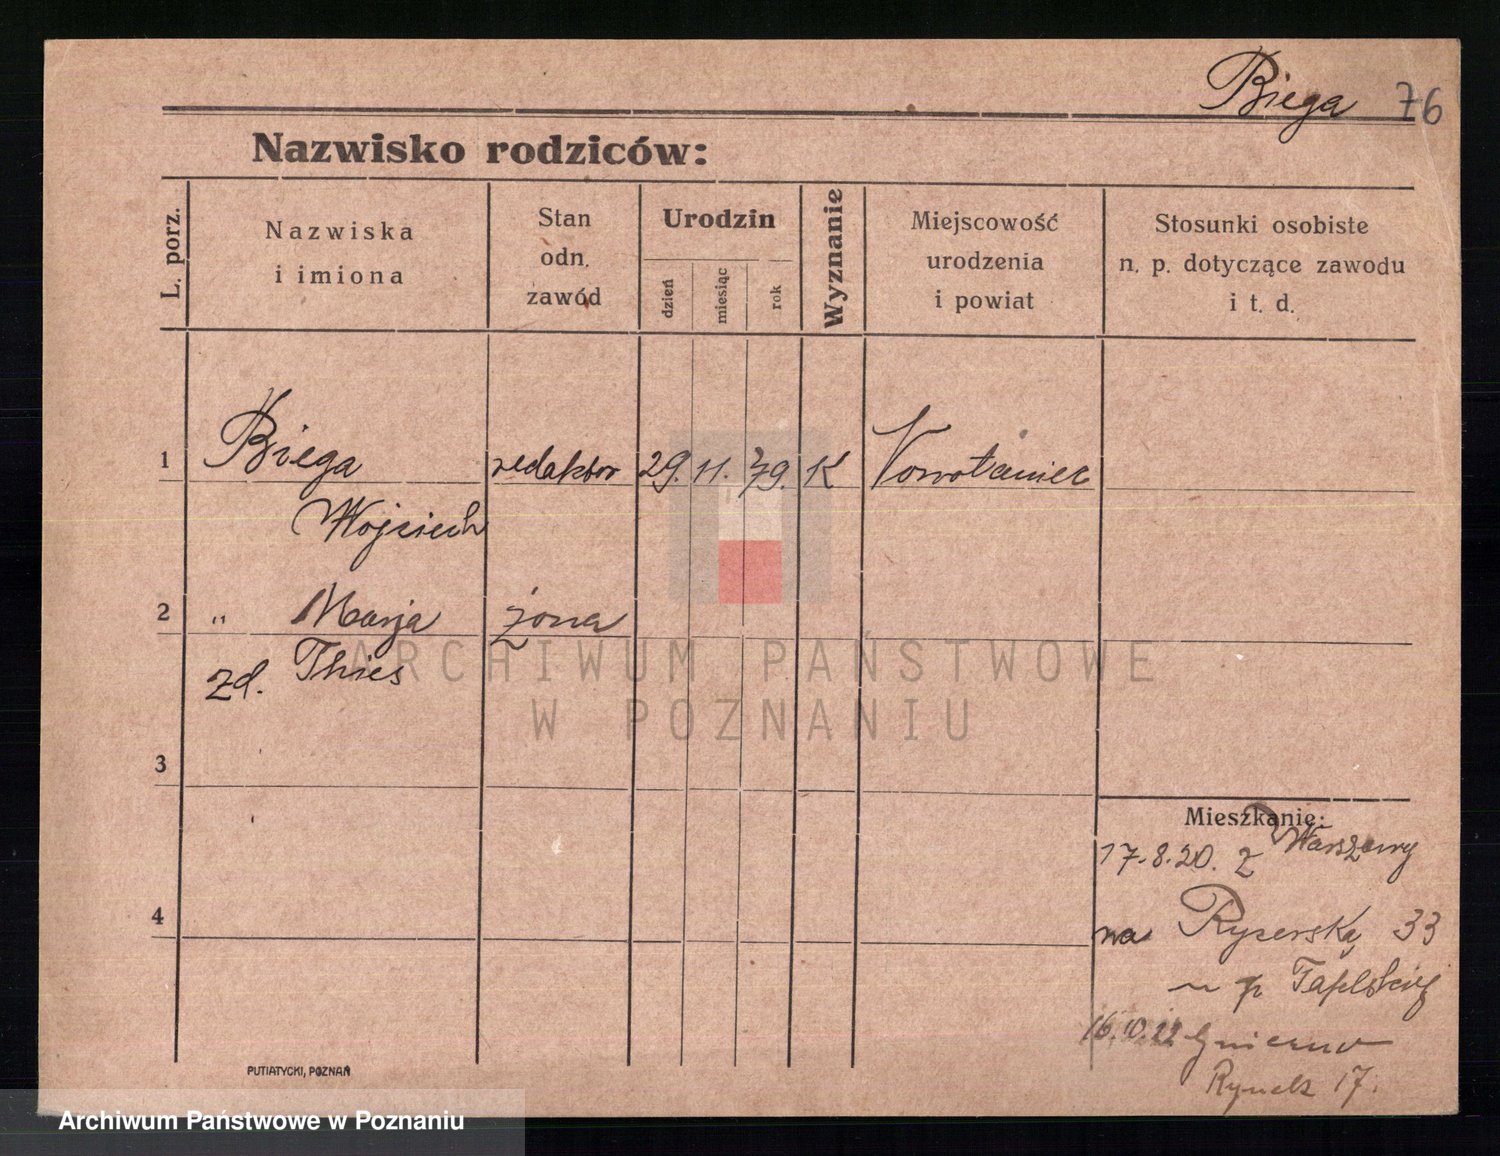 Biega 76
Nazwisko rodziców:
L. porz.
Nazwiska
i imiona
Stan
odn.
zawód
Urodzin
dzień
miesiąc
rok
Wyznanie
Miejscowość
urodzenia
i powiat
Stosunki osobiste
n. p. dotyczące zawodu
i t. d.
1 Biega redaktor 29. 11. 79. K Nowotaniec
Wojciech
2 " Marja żona
zd. Thies
ARCHIWUM PAŃSTWOWE
W POZNANIU
3
Mieszkanie:
17.8.20. z Warszawy
4
na Rycerską 33
u p.
16.10.22 Gniezno
Rynek 17.
PUTIATYCKI, POZNAŃ
Archiwum Państwowe w Poznaniu